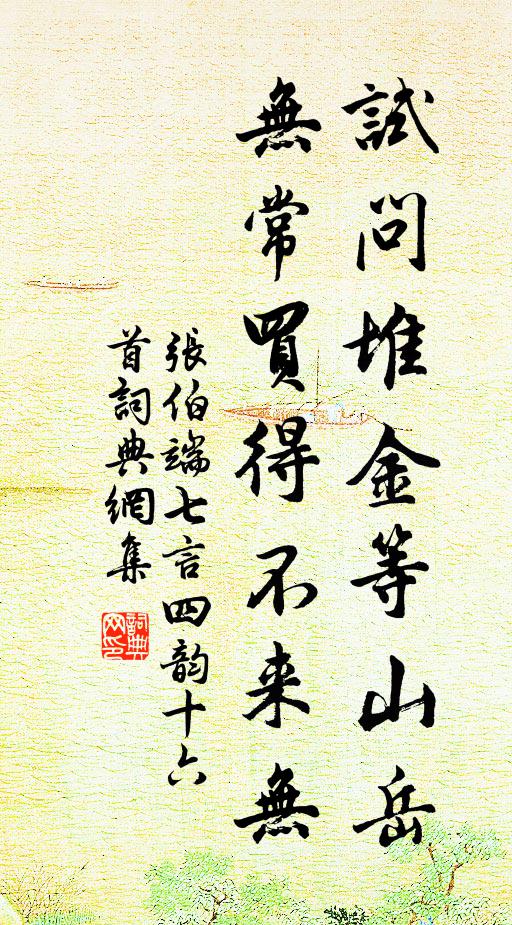 試問堆金等山岳
無常買得不来無
張伯端七言四韵十六
首詞典網集
詞典
网印